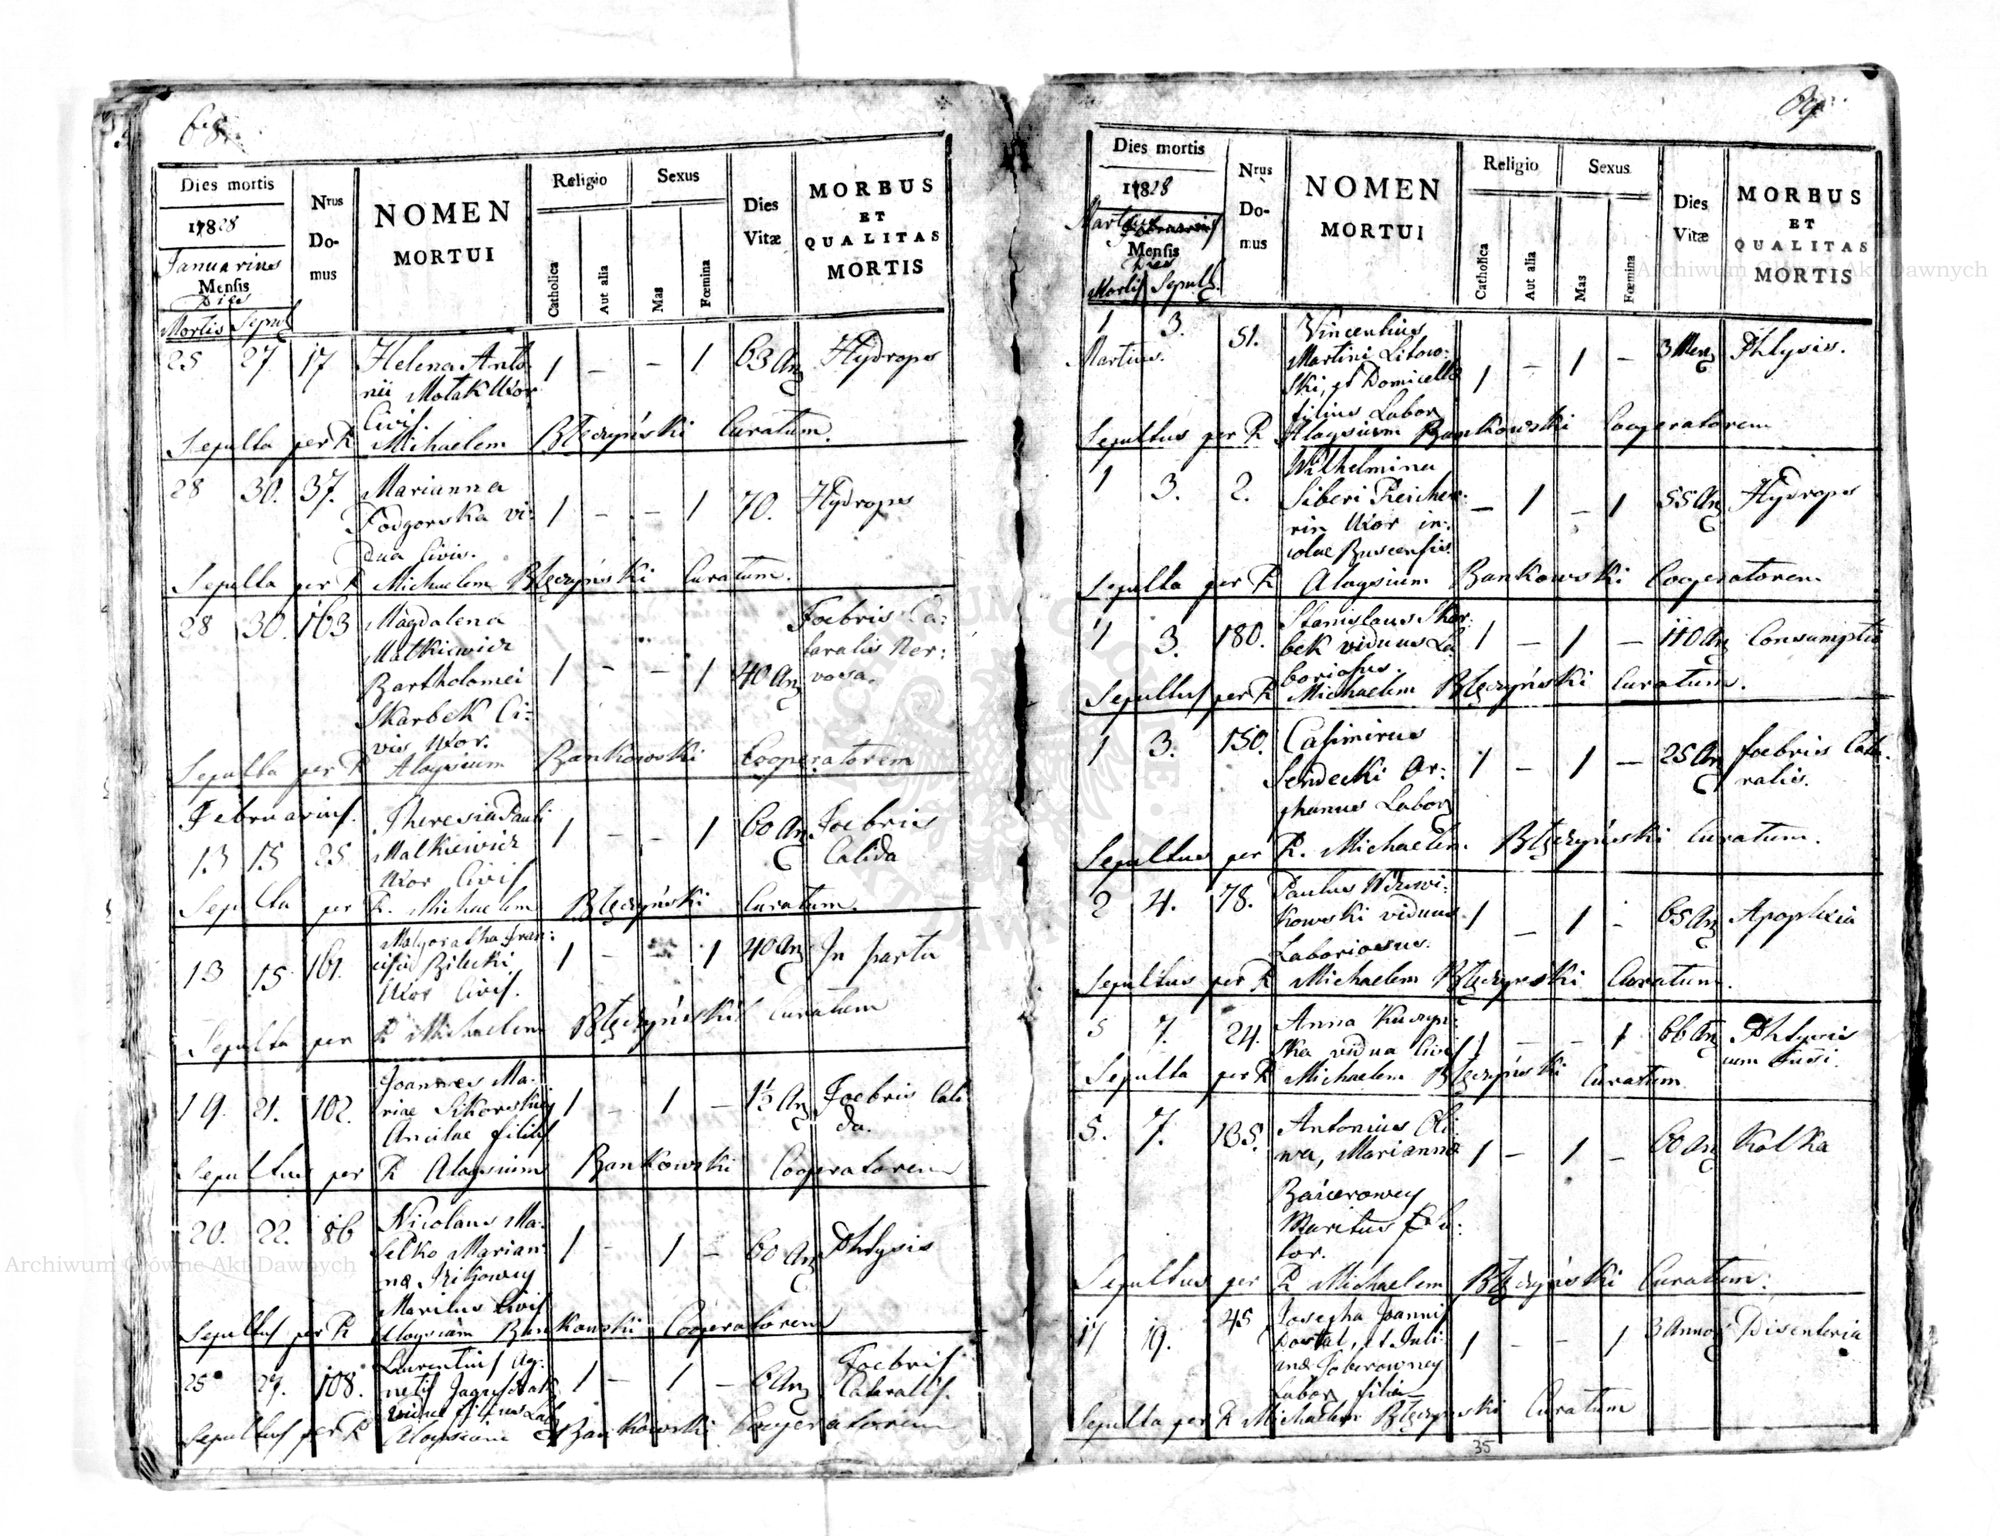 68.
Dies mortis
1828
Januarius
Mensis
Dies
Mortis Sepul
Nrus Do-
mus
NOMEN
MORTUI
Religio
Catholica
Aut alia
Sexus
Mas
Fœmina
Dies
Vitæ
MORBUS
ET
QUALITAS
MORTIS
25 27 17 Helena Anto-
nii Motak Uxor
Civis. 1 – – 1 63 An Hydrops
Sepulta per R Michaelem Błęczyński Curatum.
28 30. 37. Marianna
Podgorska vi-
dua Civis. 1 – – 1 70. Hydrops
Sepulta per R Michaelem Błęczyński Curatum.
28 30. 163 Magdalena
Matkiewicz
Bartholomei
Skarbek Ci-
vis Uxor. 1 – – 1 40 An Foebris Ca-
taralis Ner-
vosa.
Sepulta per R Aloysium Bankowski Cooperatorem
Februarius.
13 15 25. Theresia Pauli
Malkiewicz
Uxor Civis 1 – – 1 60 An Foebris
Calida
Sepulta per R. Michaelem Błęczyński Curatum.
13 15 161. Malgoratha Fran-
cisci Bilecki
Uxor Civis. 1 – – 1 40 An In partu
Sepulta per R Michaelem Błęczyński Curatum
19. 21. 102. Joannes Ma-
riae
Ancilae filius 1 – 1 – 1½ An Foebris Cali
da.
Sepultus per R Aloysium Bankowski Cooperatorem
20. 22. 86 Nicolaus Ma-
Marian-
nae
Maritus Civis 1 – 1 – 60 An Phtysis
Sepultus per R Aloysium Bankowski Cooperatorem
25 27. 108. Laurentius Ag-
netis
filius Lab 1 – 1 – 6 An Foebris
Cataralis.
Sepultus per R Aloysium Bankowski Cooperatorem
69.
Dies mortis
1828
Martius Februarius
Mensis
Dies
Mortis Sepult.
Nrus
Do-
mus
NOMEN
MORTUI
Religio
Catholica
Aut alia
Sexus
Mas
Fœmina
Dies
Vitæ
MORBUS
ET
QUALITAS
MORTIS
1 3. 51. Vincentius
Martius. Martini Litow-
ski, et Domicella
filius Labor 1 – 1 – 3 Men Phtysis.
Sepultus per R Aloysium Bankowski Cooperatorem
1 3. 2. Wilhelmina
Siberi Reiche-
rin Uxor in-
colae Buscensis – 1 – 1 55 An Hydrops
Sepulta per R Aloysium Bankowski Cooperatorem
1 3. 180. Stanislaus Skar-
bek viduus La
boriosus. 1 – 1 – 110 An Consumptio
Sepultus per R Michaelem Błęczyński Curatum.
1 3. 150. Casimirus
Sendecki Or-
phanus Labor 1 – 1 – 25 An foebris Cata-
ralis.
Sepultus per R. Michaelem Błęczyński Curatum.
2 4. 78. Paulus
kowski viduus
Laboriosus. 1 – 1 – 65 An Apoplexia
Sepultus per R Michaelem Błęczyński Curatum.
5 7. 24. Anna Kuczyn-
ska vidua Civis 1 – – 1 66 An Phtysis
cum tusi.
Sepulta per R Michaelem Błęczyński Curatum
5. 7. 135. Antonius Oli-
wa, Marianna
Maritus
1 – 1 – 60 An Kolka
Sepultus per R Michaelem Błęczyński Curatum.
17 19. 45 Josepha Joannis
Dostal, et Juli-
anae
Labor filia 1 – – 1 3 Annor Disenteria
Sepulta per R Michaelem Błęczynski Curatum
35
Archiwum Główne Akt Dawnych
Archiwum Główne Akt Dawnych
ARCHIWUM GŁÓWNE AKT DAWNYCH